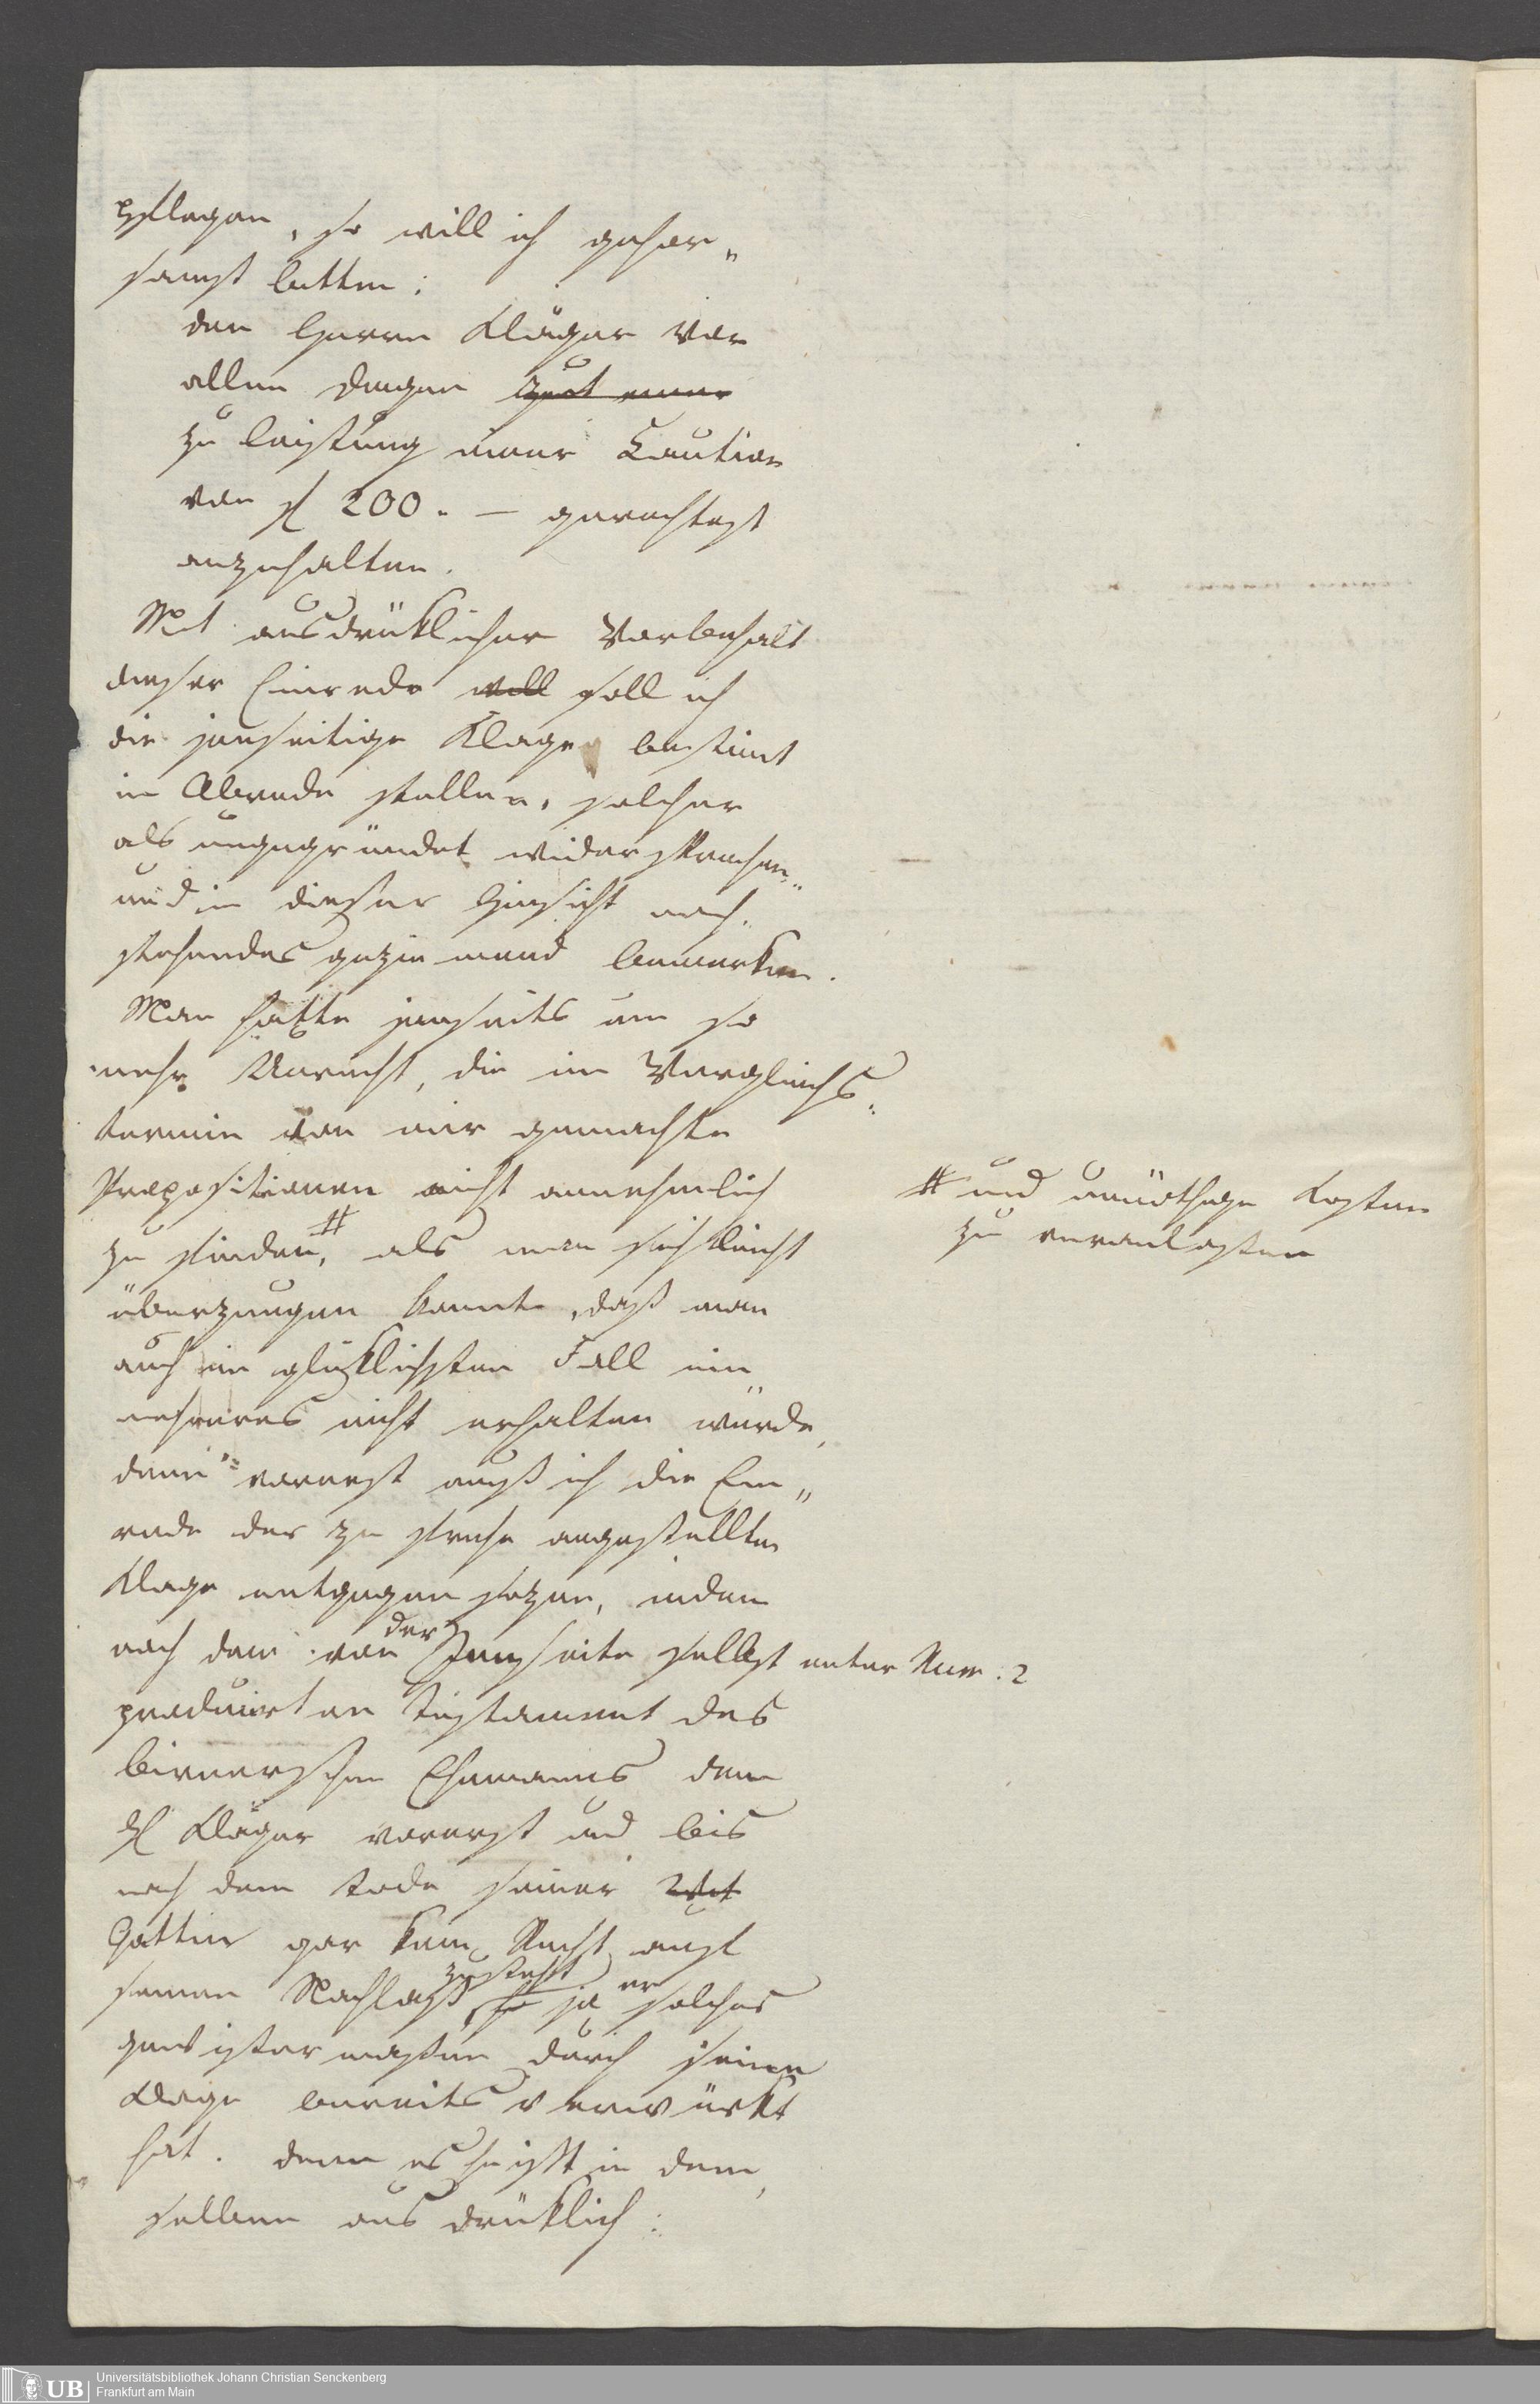 pflegen, so will ich gehor„
samst bitten:
den Herrn Kläger vor
allen Dingen
zu Leistung einer Caution
von fl 200. — gerechtest
anzuhalten.
Mit ausdrüklicher Vorbehalt
dieser Einrede will soll ich
die jenseitige Klage bestimt
in Abrede stellen, solcher
als ungegründet widersprechen,
und in dieser Hinsicht nach„
stehendes geziemend bemerken.
Man hatte jenseits um so
mehr Unrecht, die im Vergleichs„
termin von mir gemachte
Propositionen nicht annehmlich
zu finden,# als man sich leicht
# und unnöthige Kosten
zu veranlassen
überzeugen konnte, daß man
auch im glüklichsten Fall ein
mehreres nicht erhalten würde,
denn vorerst muß ich die Ein„
rede der zu fruhe angestellten
Klage entgegen sezen, indem
nach dem von der Jenseite selbst unter Num. 2
producirten Testament des
Birnerschen Ehemanns dem
H Kläger vorerst und bis
nach dem Tode seiner
Gattin gar kein Recht auf
seinen Nachlaß zusteht, so ja er solches
gewissermassen durch seine
Klage bereits verwürkt
hat. denn es heißt in dem„
selben ausdrüklich:
Universitätsbibliothek Johann Christian Senckenberg
Frankfurt am Main
UB